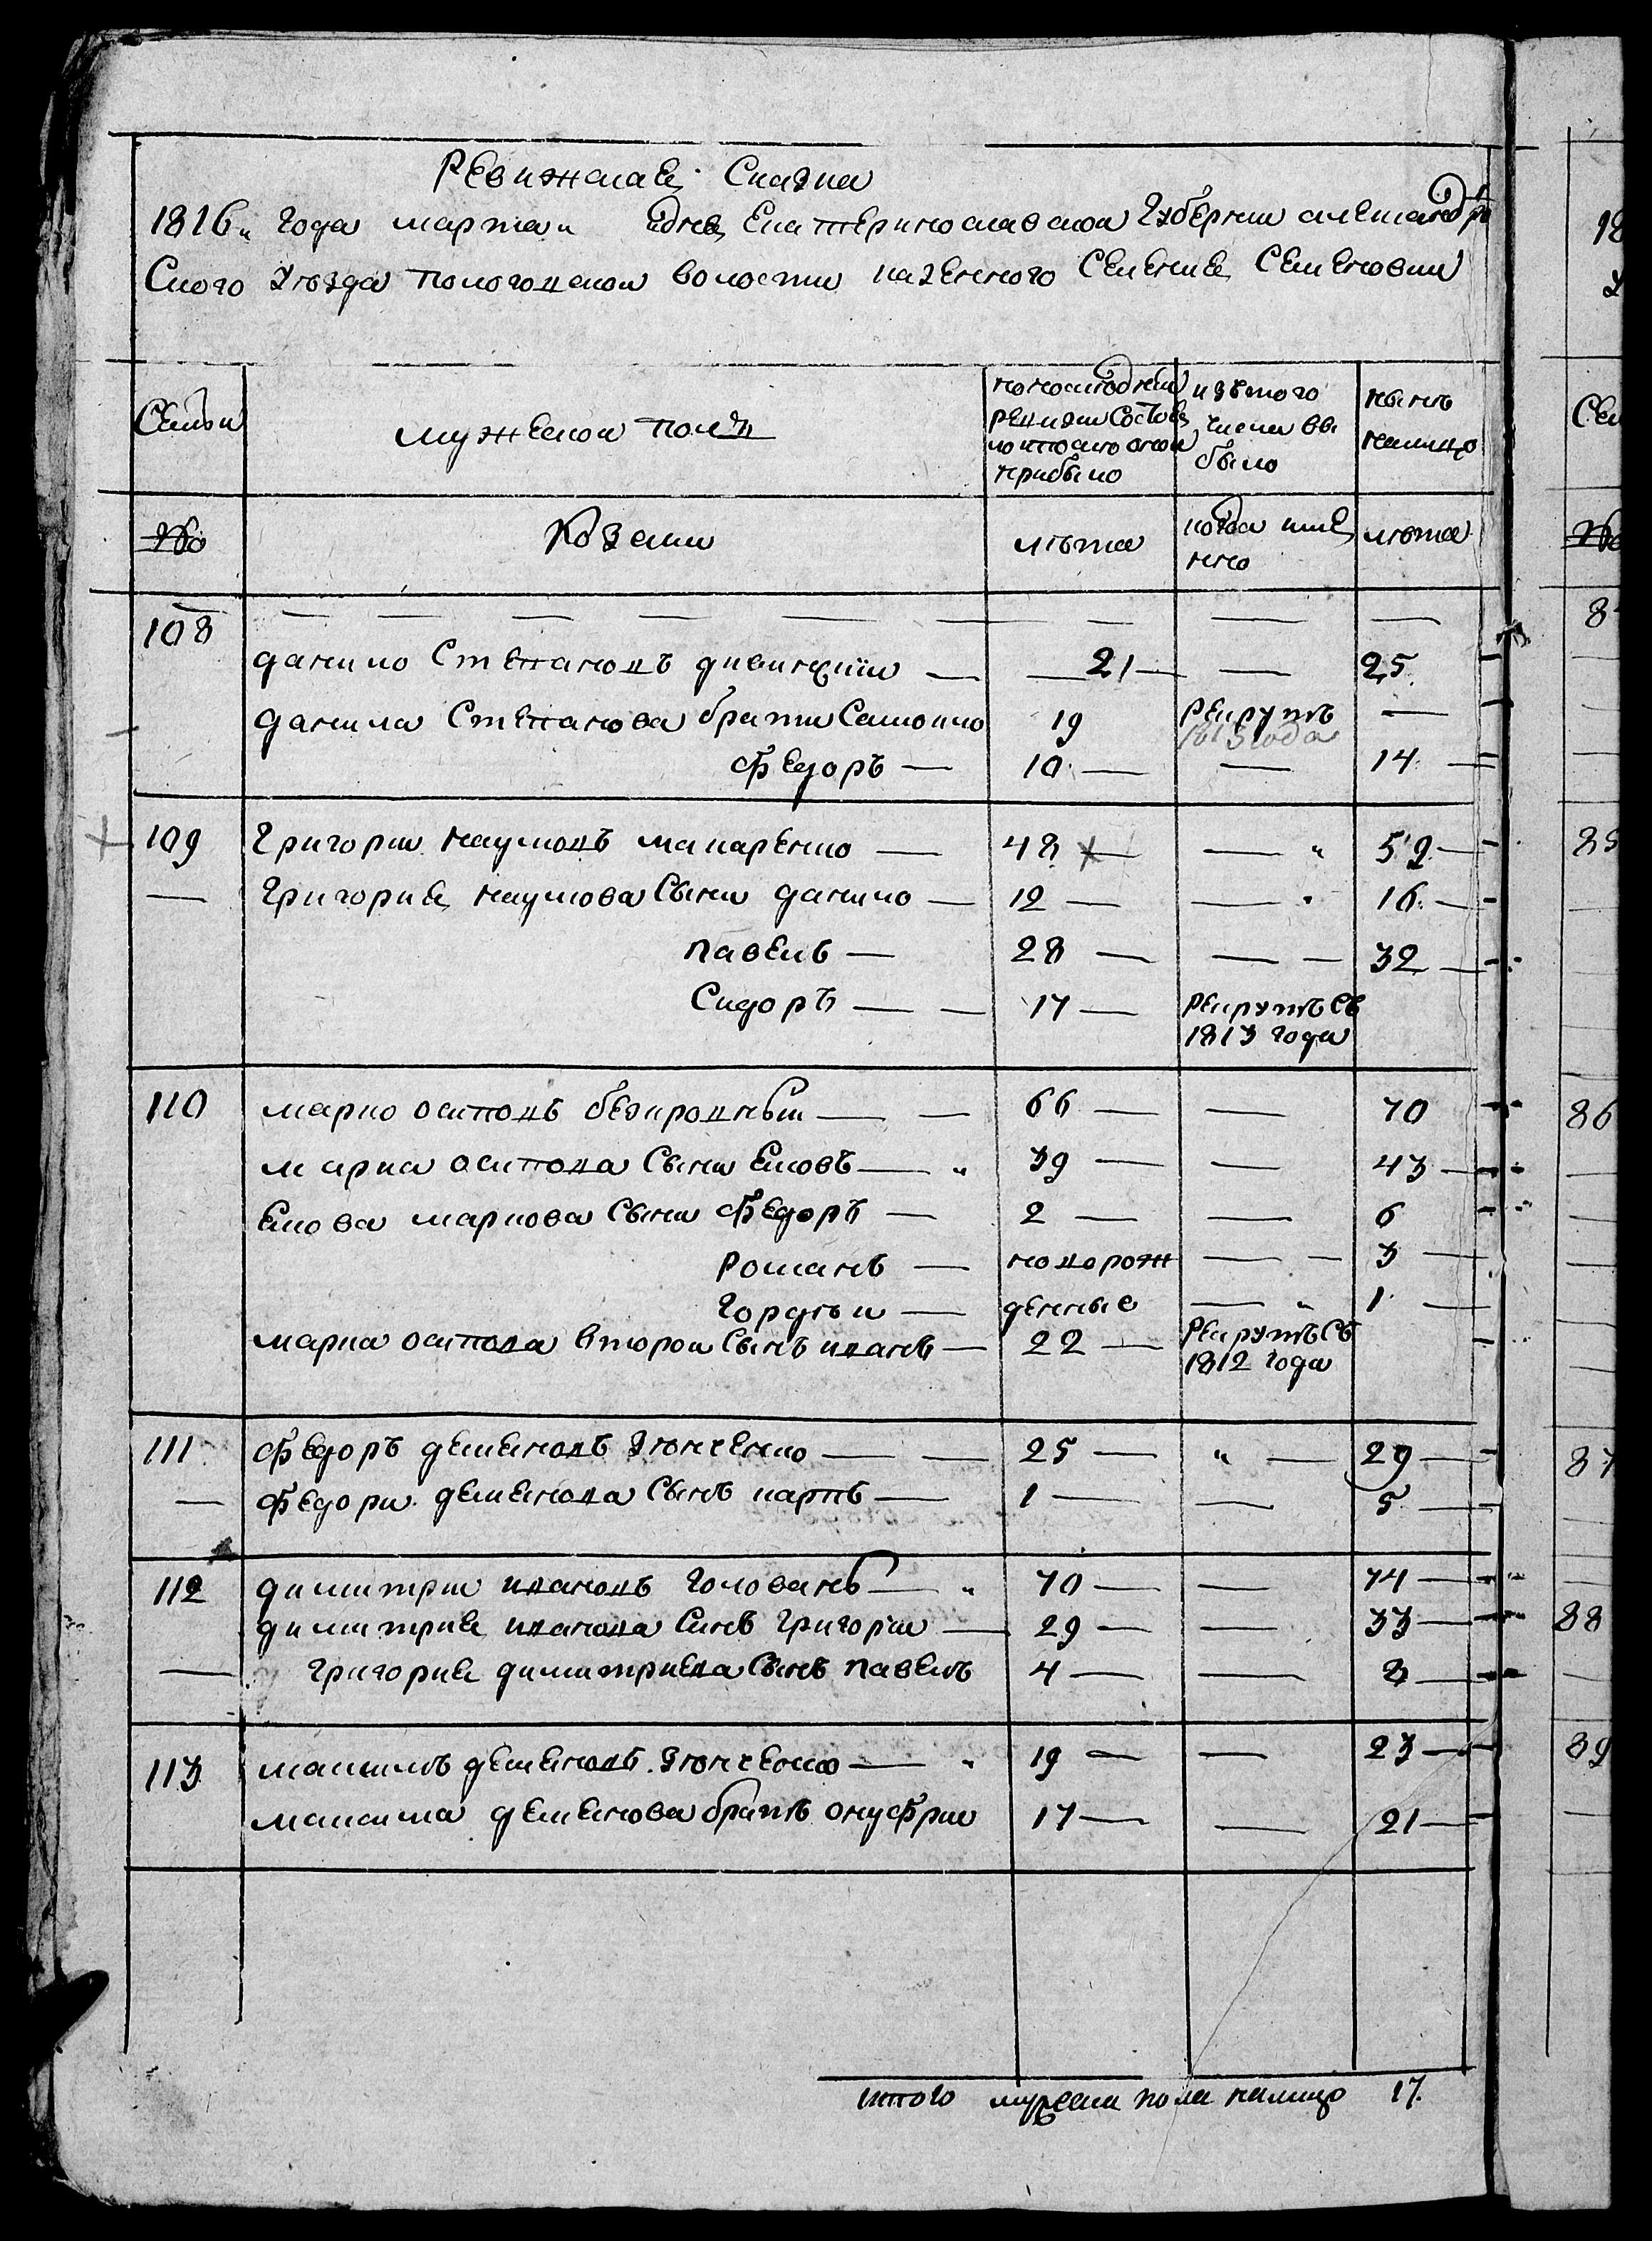 Ревижская Сказка
1816„ года марта„ дня Екатеринославской Губернии александро
Ского уезда Пологовской волости казенного Селения Семеновки
Семьи
мужеской полъ
По последней ревизии Состояло и после оной прибыло
изътого числа выбыло
ныне налицо
№
Козаки
лета
когда имянно
лета
108
данило Степановъ дивинский — 21 — — 25
данила Степанова братья Самойло 19 рекрутъ 1813 года —
Федоръ — 10 — — 14
109 Григорий наумовъ макаренко — 48 — — „ 52
— Григория наумова Сыны данило — 12 — — 16
павелъ — 28 — — 32
Сидоръ — 17 — рекрутъ Съ 1813 года
110 марко осиповъ безкровный — 66 — — 70
марка осипова Сыны Яковъ — „ 39 — — 43
Якова маркова Сыны Федоръ — 2 — — 6
романъ — новорож — 3
Гордей — денные — „ 1
марка осипова второй Сынъ иванъ — 22 — рекрутъ Съ 1812 года
111 Федоръ деменовъ Зюнченко — 25 — „ — 29
— Федора деменова Сынъ карпъ — 1 — — 5
112 димитрий ивановъ Голованъ — „ 70 — — 74
димитрия иванова Синъ Григорий — 29 — — 33
— Григория димитриева Сынъ павелъ 4 — — 8
113 максимъ деменовъ Зюнченко — „ 19 — — 23
максима деменова братъ онуфрий 17 — — 21
итого мужеска пола налицо 17.
18
Сем
№
8
85
86
87
88
89